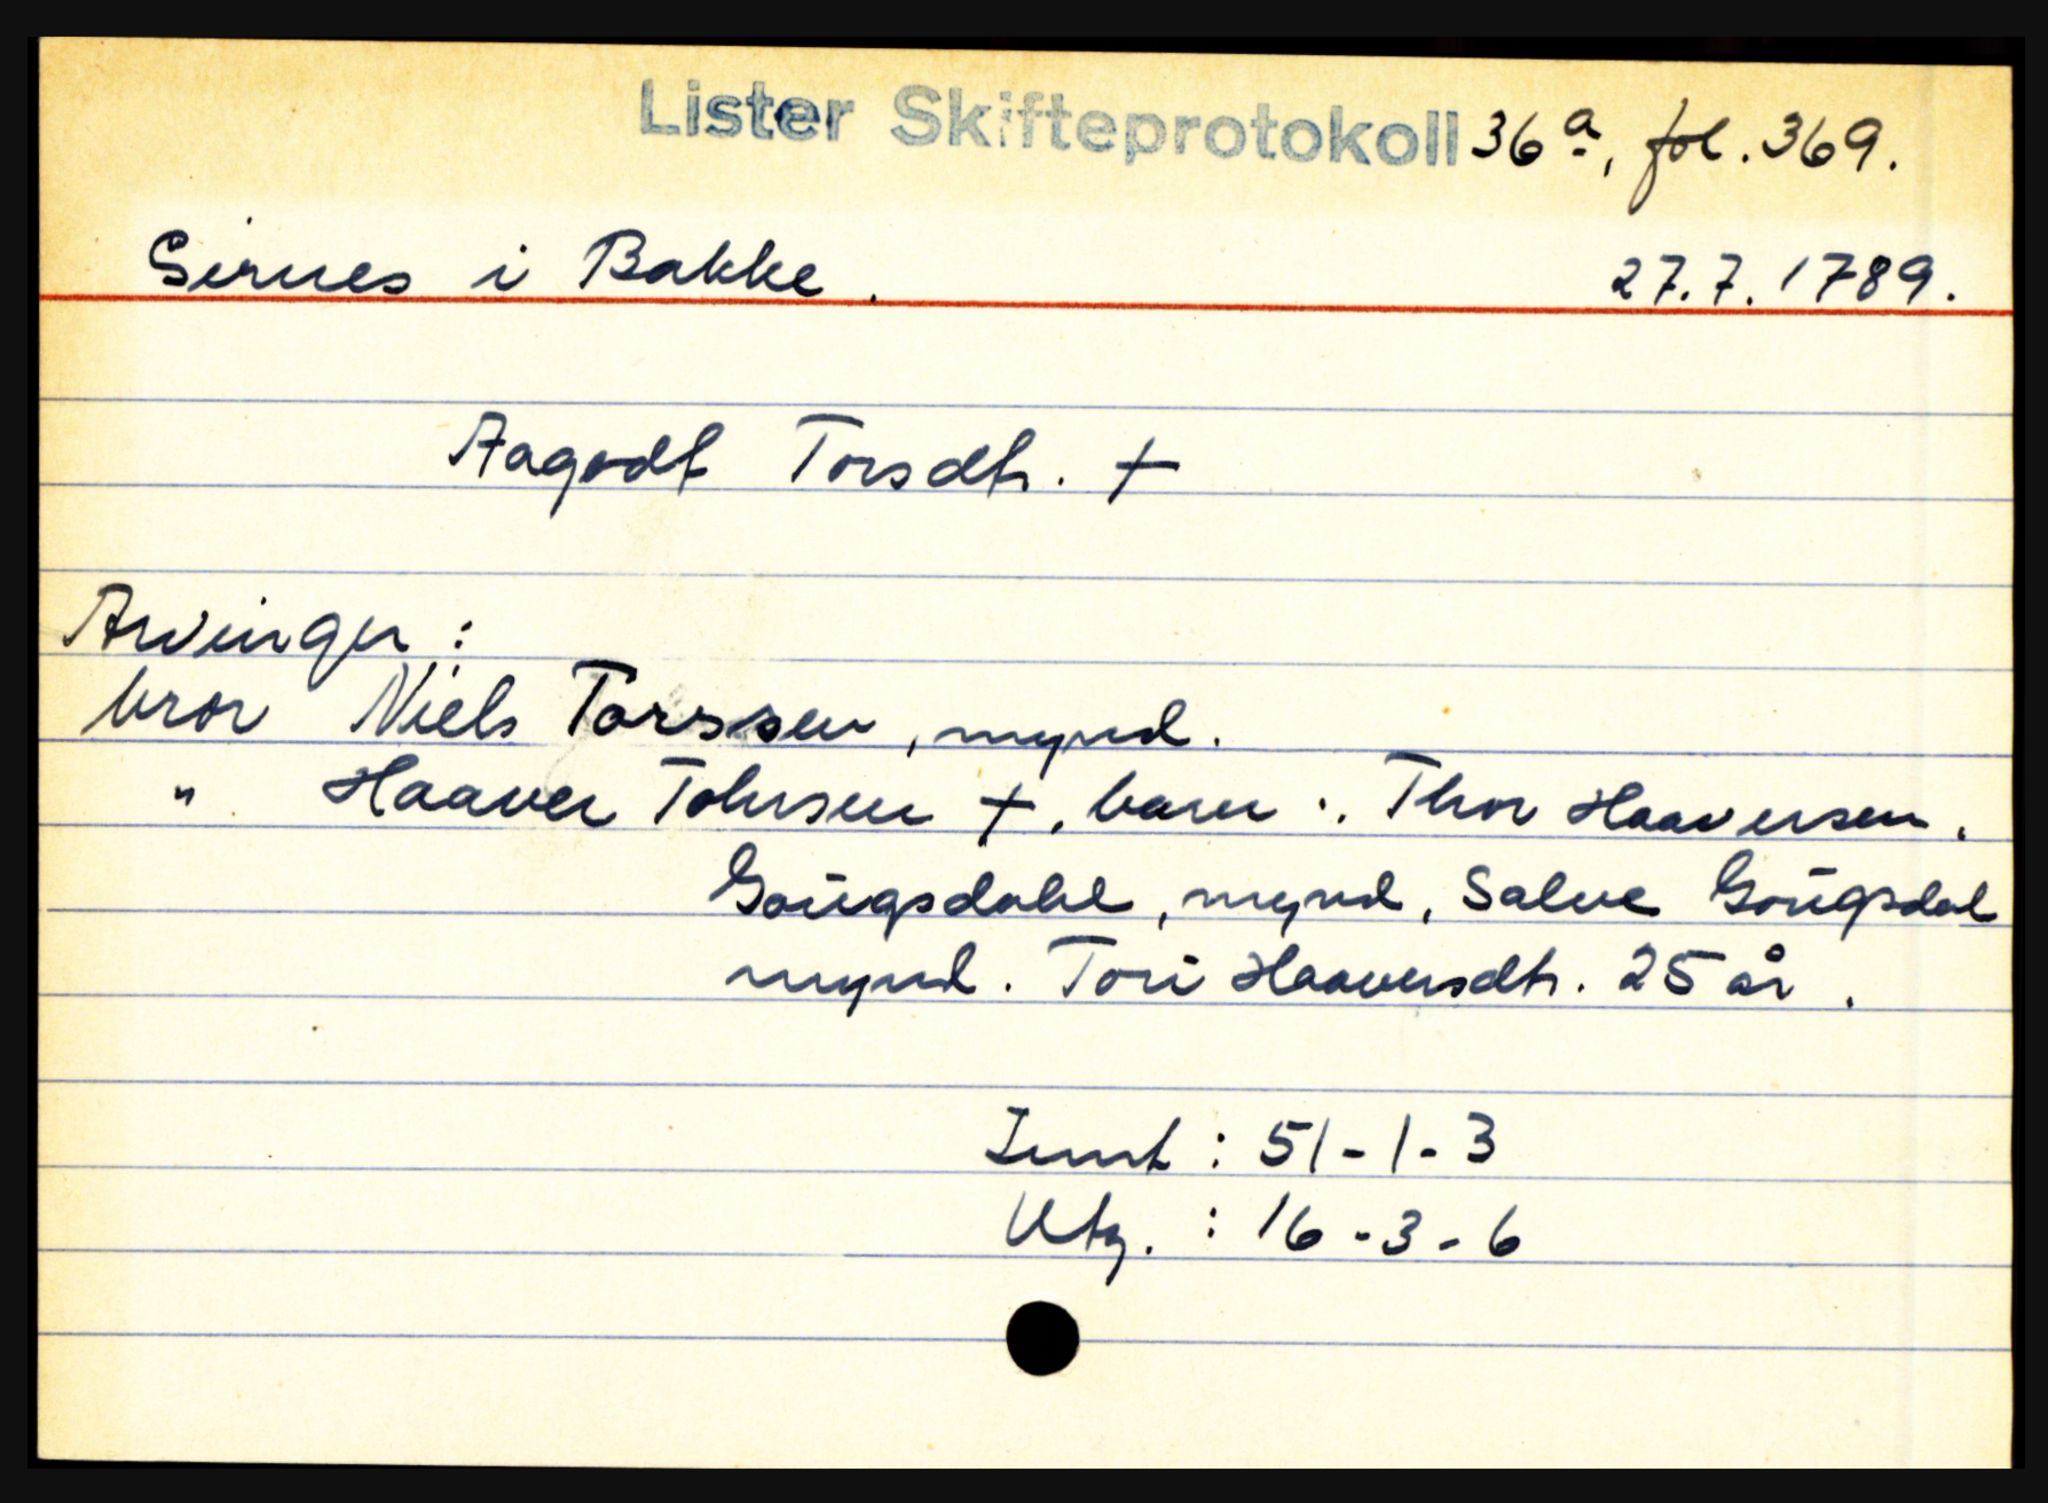 Lister Skifteprotokoll 36 a, fol. 369.
Sirnes i Bakke. 27.7.1789.
Aagodt Torsdtr. †
Arvinger:
bror Niels Torssen, mynd.
" Haaver Tohrsen †, barn: Thor Haaversen.
Goŭgsdahl, mynd, Salve Goŭgsdal
mynd. Tori Haaversdtr. 25 år.
Innt: 51-1-3
Utg.: 16-3-6